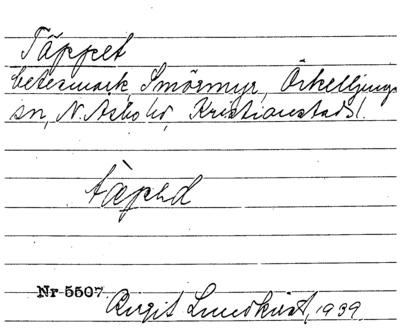 Täppet
betesmark, Smörmyr, Örkelljunga
sn, N. Åsbo hd, Kristianstads l.
täpəd
Nr 5507
Birgit Lundkvist, 1939.